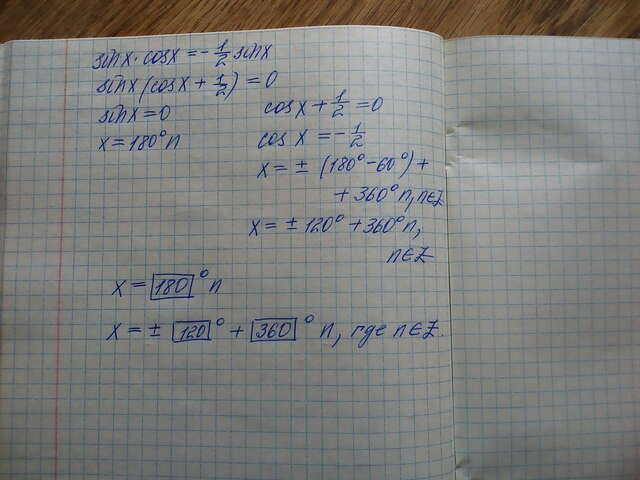 sinx·cosx = -1/2 sinx
sinx(cosx + 1/2) = 0
sinx = 0
x = 180°n
cosx + 1/2 = 0
cosx = -1/2
x = ± (180° - 60°) +
+ 360°n, n∈Z
x = ± 120° + 360°n,
n∈Z
x = 180° n
x = ± 120° + 360° n, где n∈Z.